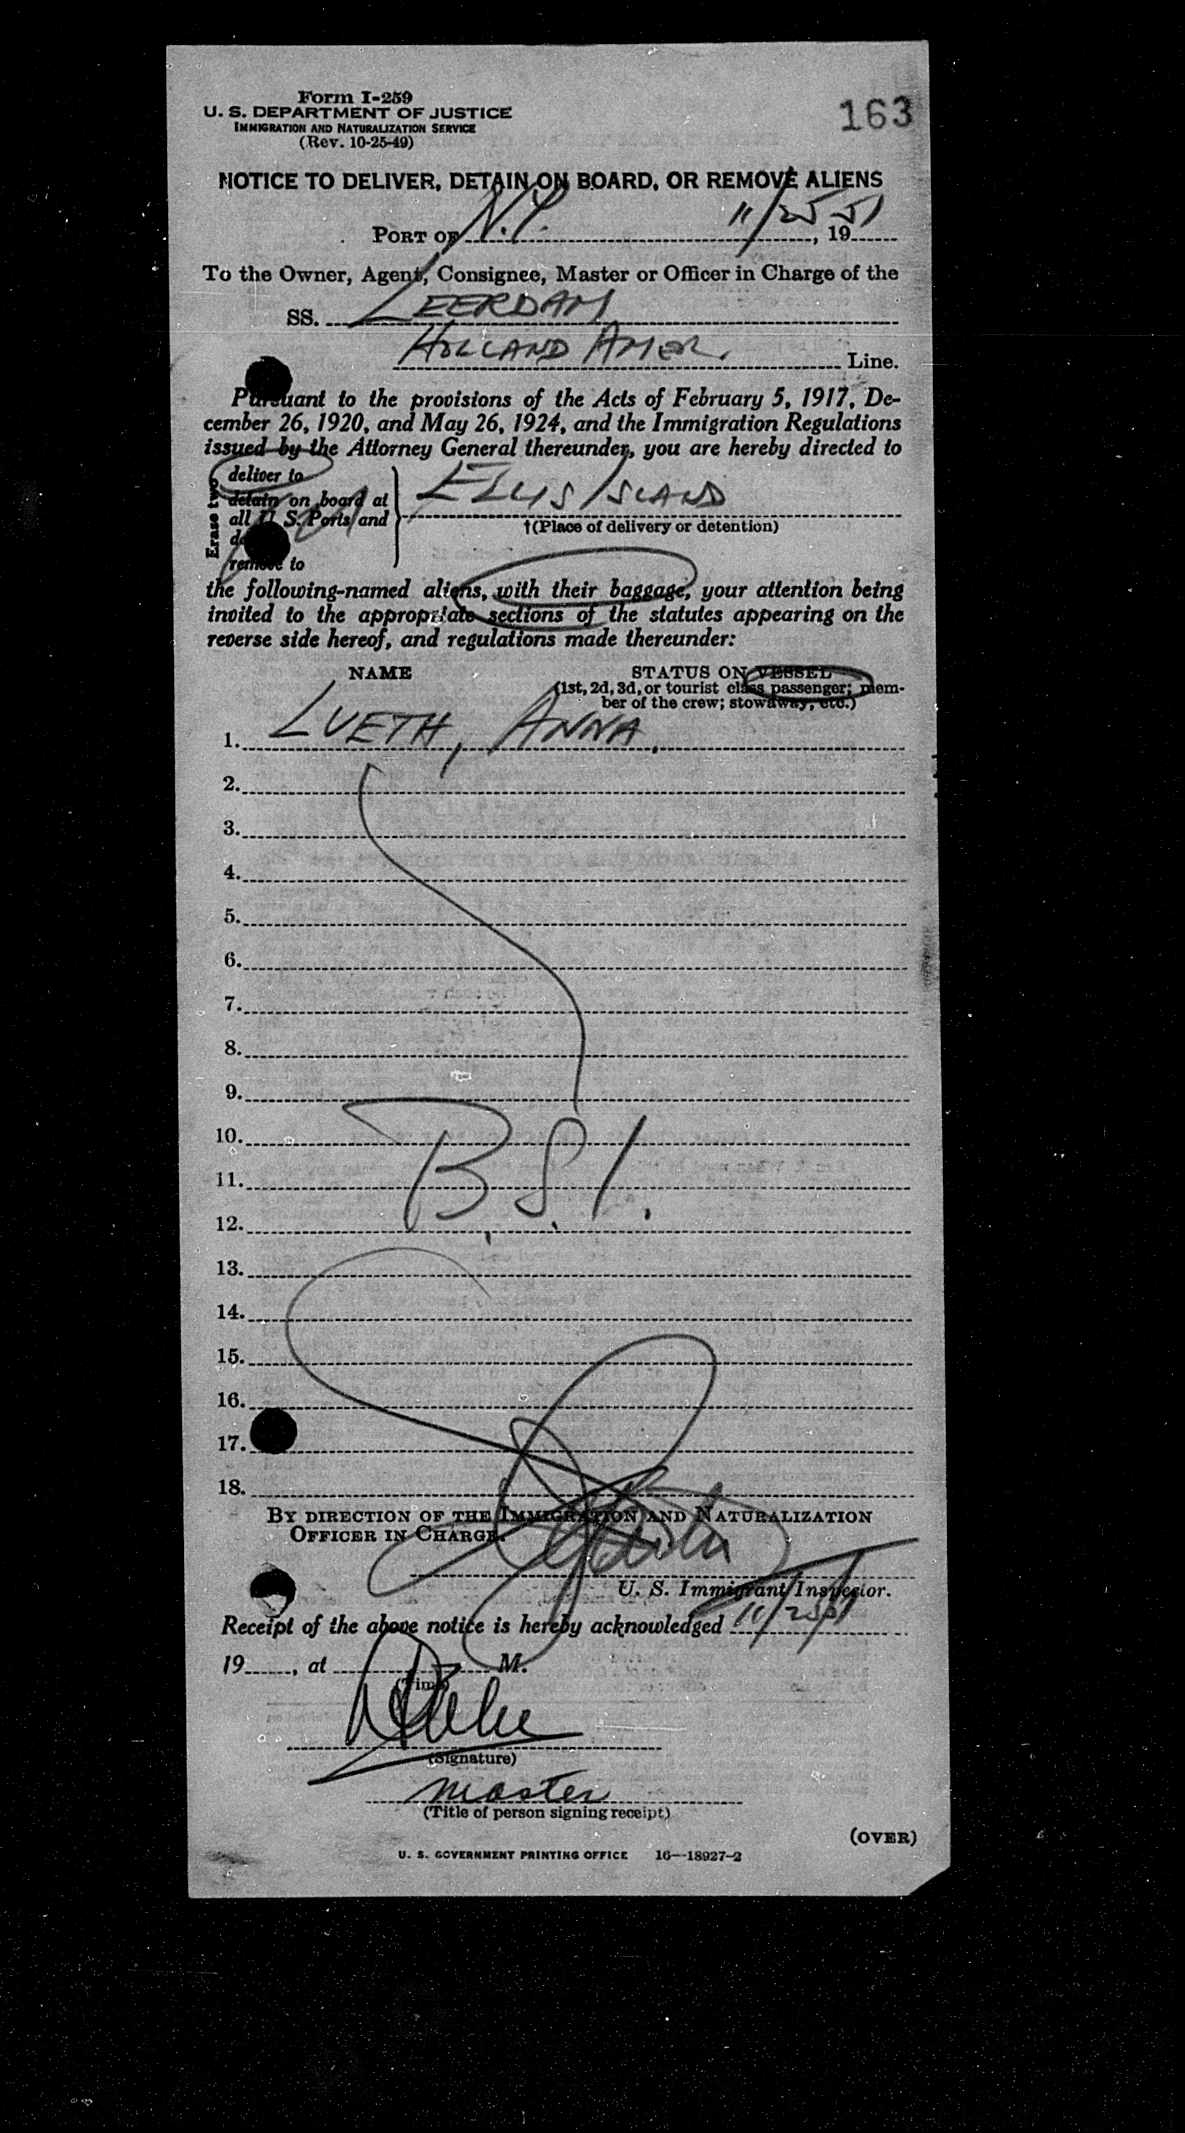 Form I-259
U. S. DEPARTMENT OF JUSTICE
IMMIGRATION AND NATURALIZATION SERVICE
(Rev. 10-25-49)
163
NOTICE TO DELIVER, DETAIN ON BOARD, OR REMOVE ALIENS
PORT OF N.Y. 11/25 51, 19
To the Owner, Agent, Consignee, Master or Officer in Charge of the
SS. LEERDAM
HOLLAND AMER. Line.
Pursuant to the provisions of the Acts of February 5, 1917, De-
cember 26, 1920, and May 26, 1924, and the Immigration Regulations
issued by the Attorney General thereunder, you are hereby directed to
Erase two
deliver to
detain on board at
all U. S. Ports and
remove to
ELLIS ISLAND
†(Place of delivery or detention)
the following-named aliens, with their baggage, your attention being
invited to the appropriate sections of the statutes appearing on the
reverse side hereof, and regulations made thereunder:
NAME
STATUS ON VESSEL
(1st, 2d, 3d, or tourist class passenger; mem-
ber of the crew; stowaway, etc.)
1. LUETH, ANNA.
2.
3.
4.
5.
6.
7.
8.
9.
10.
11. B.S.I.
12.
13.
14.
15.
16.
17.
18.
BY DIRECTION OF THE IMMIGRATION AND NATURALIZATION
OFFICER IN CHARGE.
U. S. Immigrant Inspector.
Receipt of the above notice is hereby acknowledged 11/25/51
19, at M.
(Time)
(Signature)
master
(Title of person signing receipt)
(OVER)
U. S. GOVERNMENT PRINTING OFFICE 16—18927-2